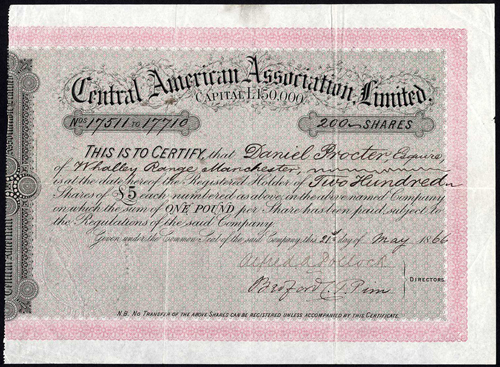 Central American Association, Limited.
CAPITAL £150,000.
Nos 17511 TO 17710
200 SHARES
THIS IS TO CERTIFY, that Daniel Procter, Esquire,
of Whalley Range, Manchester,
is at the date hereof the Registered Holder of Two Hundred
Shares of £5 each numbered as above in the above named Company
on which the sum of ONE POUND per Share has been paid, subject to
the Regulations of the said Company.
Given under the Common Seal of the said Company, this 31st day of May 1866
Alfred A Pollock
Bedford C. T. Pim
DIRECTORS.
N.B. NO TRANSFER OF THE ABOVE SHARES CAN BE REGISTERED UNLESS ACCOMPANIED BY THIS CERTIFICATE.